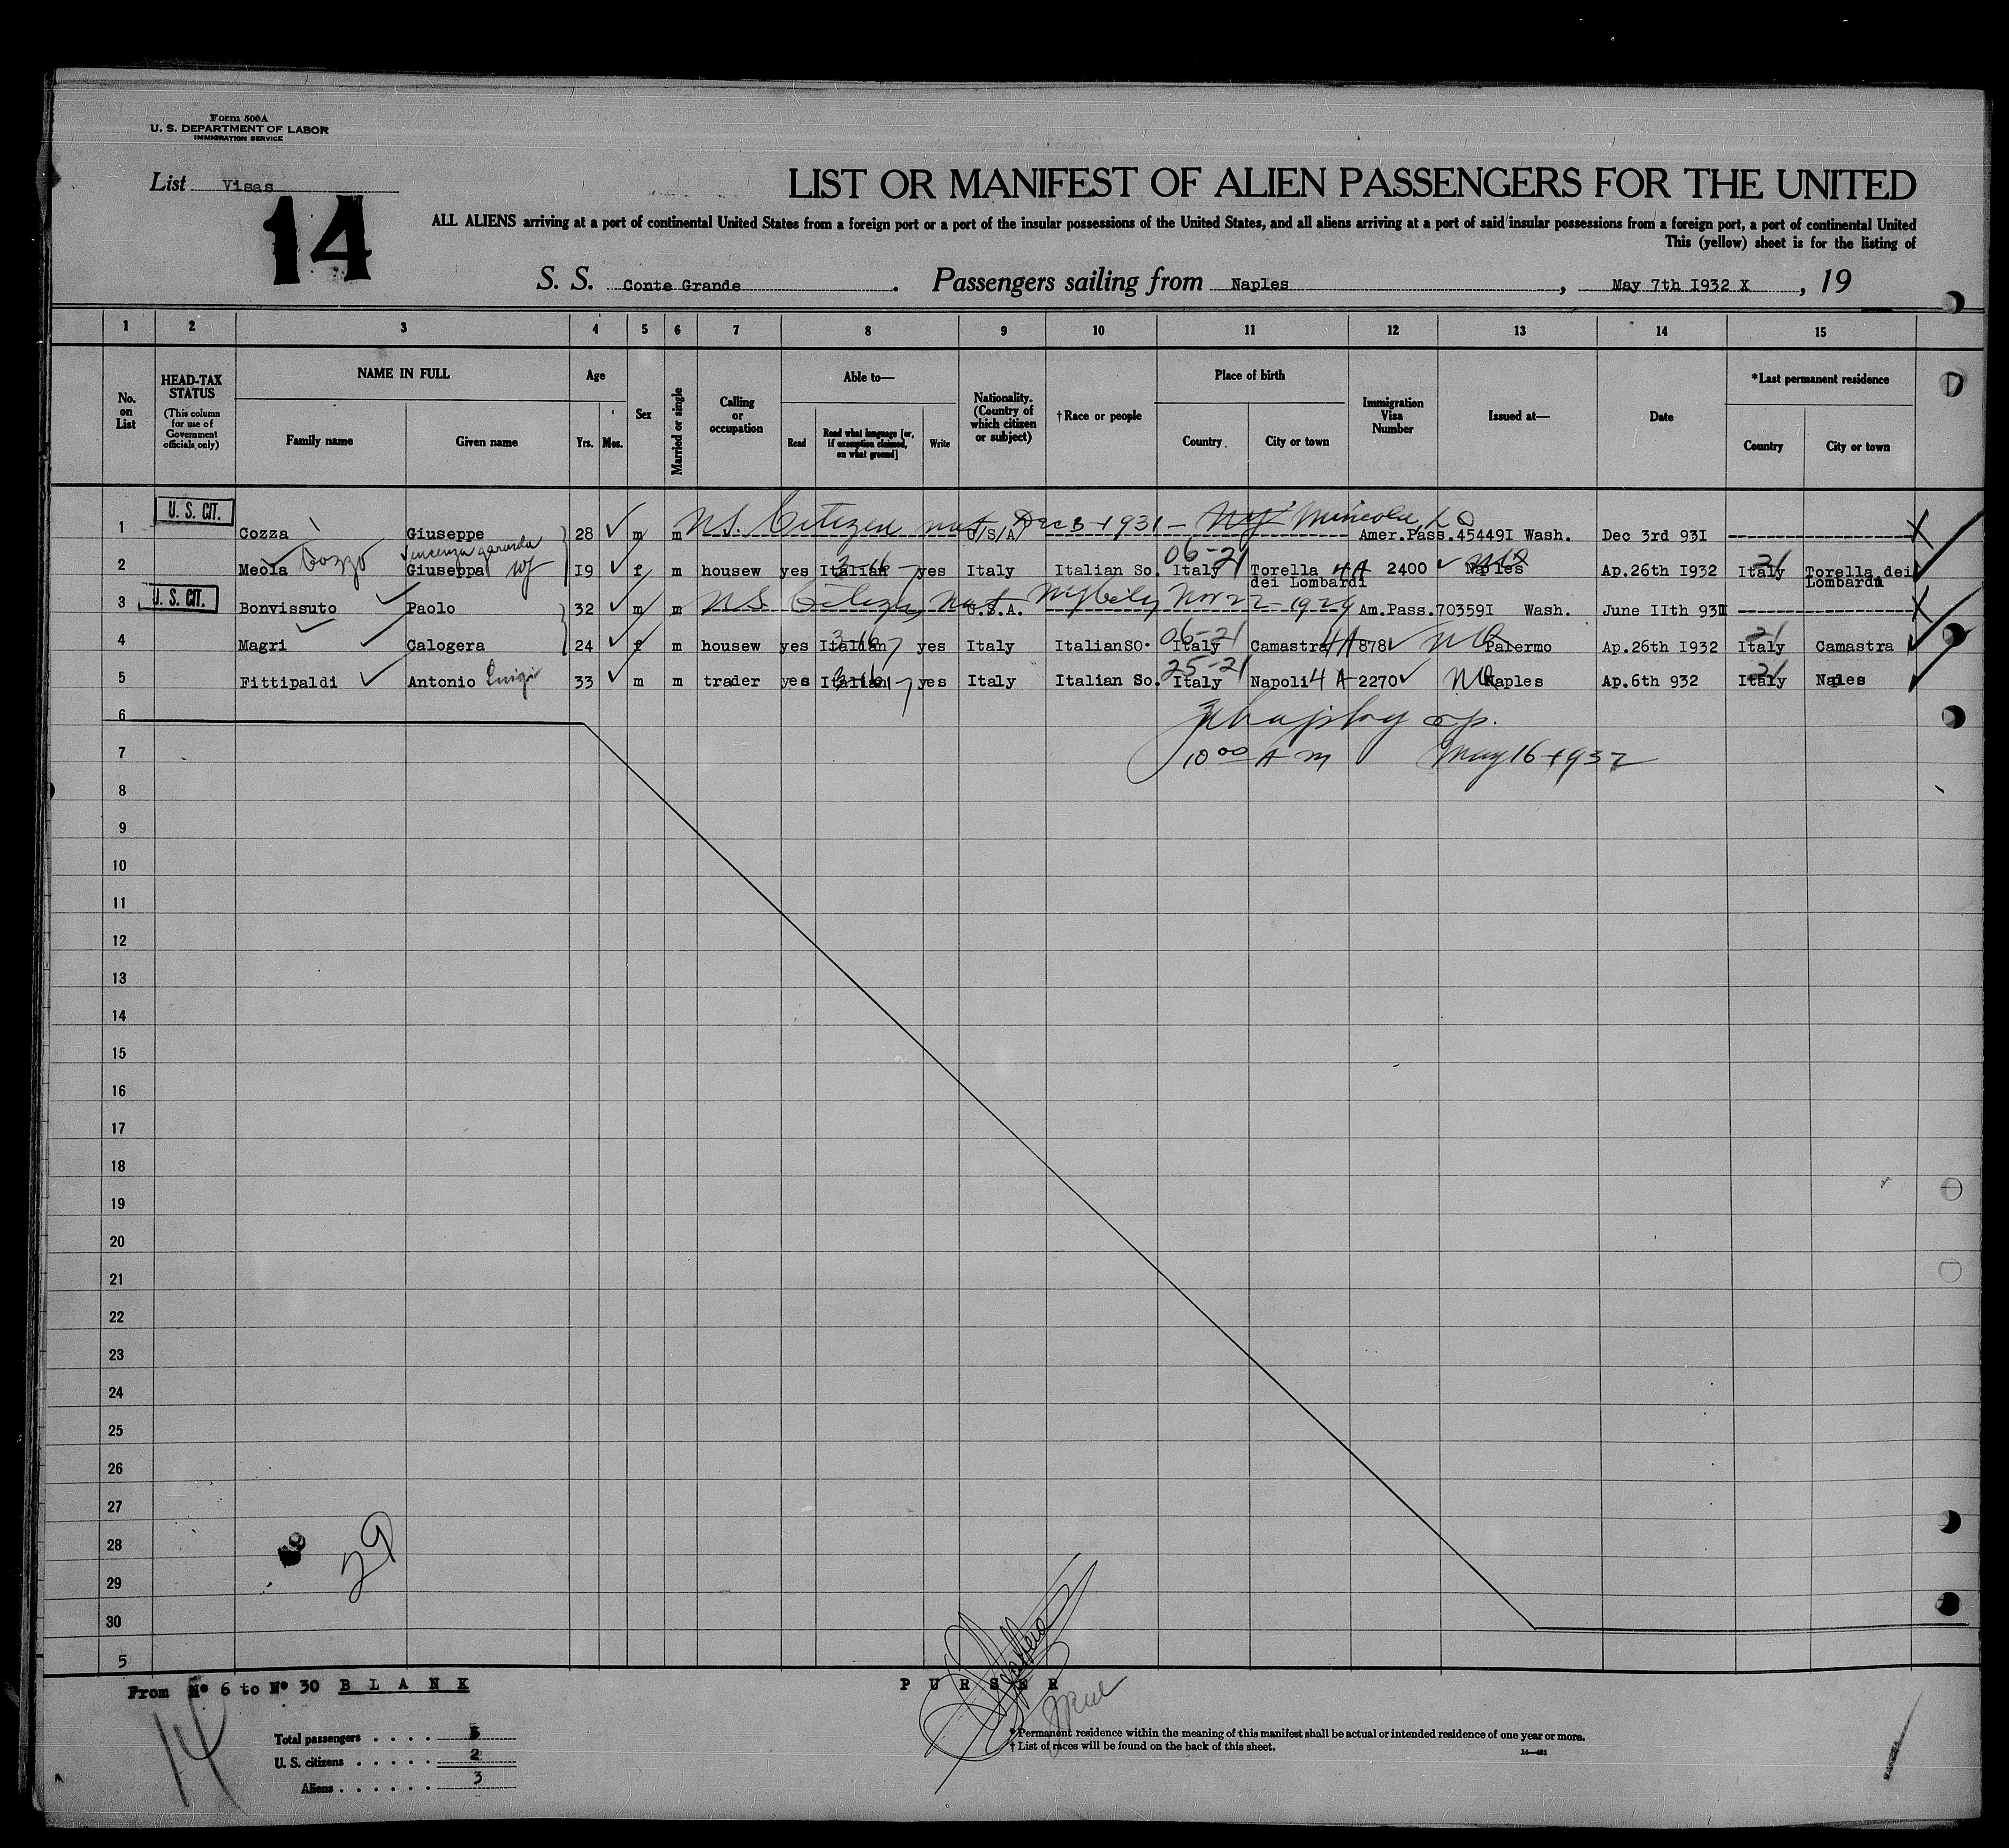 Form 500A
U. S. DEPARTMENT OF LABOR
IMMIGRATION SERVICE
List Visas
14
LIST OR MANIFEST OF ALIEN PASSENGERS FOR THE UNITED
ALL ALIENS arriving at a port of continental United States from a foreign port or a port of the insular possessions of the United States, and all aliens arriving at a port of said insular possessions from a foreign port, a port of continental United
This (yellow) sheet is for the listing of
S. S. Conte Grande. Passengers sailing from Naples, May 7th I932 X, 19
1 2 3 4 5 6 7 8 9 10 11 12 13 14 15
No. on List
HEAD-TAX STATUS (This column for use of Government officials only)
NAME IN FULL
Family name Given name
Age
Yrs. Mos.
Sex
Married or single
Calling or occupation
Able to—
Read Read what language [or, if exemption claimed, on what ground] Write
Nationality. (Country of which citizen or subject)
†Race or people
Place of birth
Country. City or town
Immigration Visa Number
Issued at—
Date
*Last permanent residence
Country City or town
U. S. CIT.
U.S. Citizen nat Dec 3-1931- NY Mineola
1 Cozza Giuseppe 28 m m U/S/A/ Amer.Pass.45449I Wash. Dec 3rd 93I
Cozzo 3-16 06-21 4A 21
2 Meola Giuseppa 19 f m housew yes Italian yes Italy Italian So. Italy Torella dei Lombardi 2400 Naples Ap.26th I932 Italy Torella dei Lombardi
U. S. CIT.
U.S. Citizen nat Nov 22-1929
3 Bonvissuto Paolo 32 m m U.S.A. Am.Pass.70359I Wash. June IIth 93I
3-16 06-21 4A 21
4 Magri Calogera 24 f m housew yes Italian yes Italy ItalianSO. Italy Camastra 878 Palermo Ap.26th I932 Italy Camastra
Luigi 3-16 25-21 4A 21
5 Fittipaldi Antonio 33 m m trader yes Italian yes Italy Italian So. Italy Napoli 2270 Naples Ap.6th 932 Italy Naples
6
7 10 00 AM May 16 1932
8
9
10
11
12
13
14
15
16
17
18
19
20
21
22
23
24
25
26
27
28
29
29
30
5
From Nº 6 to Nº 30 B L A N K
P U R S E R
14
Total passengers . . . . 5
U. S. citizens . . . . . 2
Aliens . . . . . . 3
* Permanent residence within the meaning of this manifest shall be actual or intended residence of one year or more.
† List of races will be found on the back of this sheet.